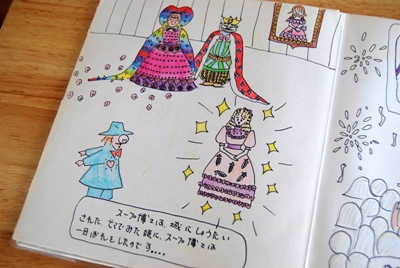 スープ博士は、城にしょうたい
された。そこでみた姫に、スープ博士は
一目ぼれをしたのです・・・・